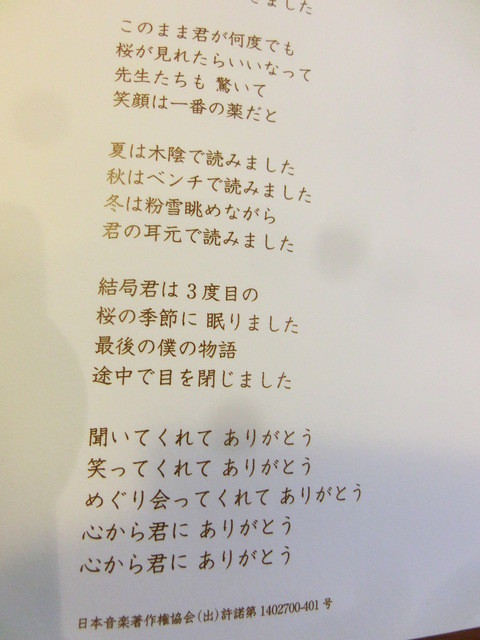 ました
このまま君が何度でも
桜が見れたらいいなって
先生たちも 驚いて
笑顔は一番の薬だと
夏は木陰で読みました
秋はベンチで読みました
冬は粉雪眺めながら
君の耳元で読みました
結局君は3度目の
桜の季節に 眠りました
最後の僕の物語
途中で目を閉じました
聞いてくれて ありがとう
笑ってくれて ありがとう
めぐり会ってくれて ありがとう
心から君に ありがとう
心から君に ありがとう
日本音楽著作権協会(出)許諾第1402700-401号